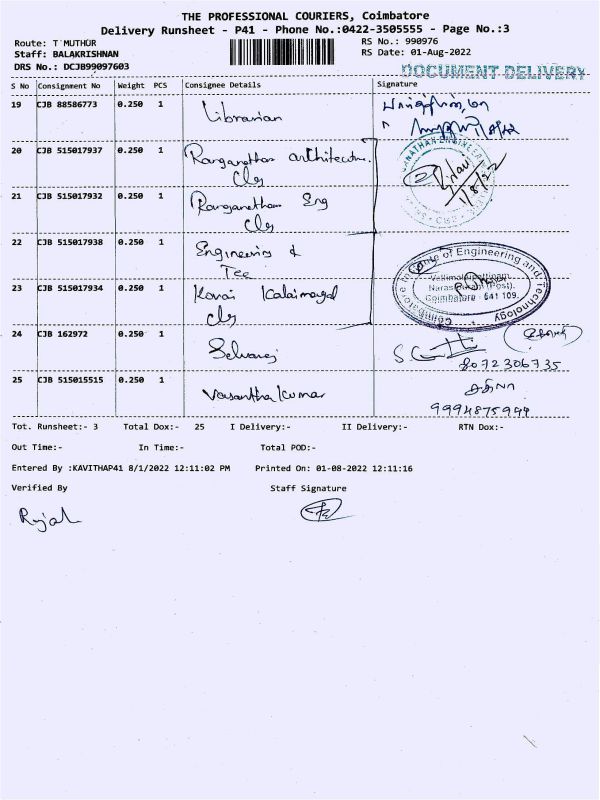 THE PROFESSIONAL COURIERS, Coimbatore
Delivery Runsheet - P41 - Phone No.:0422-3505555 - Page No.:3
Route: T MUTHUR
RS No.: 990976
Staff: BALAKRISHNAN
RS Date: 01-Aug-2022
DRS No.: DCJB99097603
DOCUMENT DELIVERY
S No Consignment No Weight PCS Consignee Details Signature
19 CJB 88586773 0.250 1 Librarian
20 CJB 515017937 0.250 1 Ranganathan architecture
Clg
1/8/22
21 CJB 515017932 0.250 1 Ranganathan Eng
Clg
22 CJB 515017938 0.250 1 Engineering &
Tec
Coimbatore Institute of Engineering and Technology
Vellimalaipattinam
Narasipuram (Post),
Coimbatore - 641 109.
23 CJB 515017934 0.250 1 Kovai Kalaimagal
Clg
24 CJB 162972 0.250 1 Selvaraj
8072306735
25 CJB 515015515 0.250 1 Vasantha Kumar
9994875944
Tot. Runsheet:- 3 Total Dox:- 25 I Delivery:- II Delivery:- RTN Dox:-
Out Time:- In Time:- Total POD:-
Entered By :KAVITHAP41 8/1/2022 12:11:02 PM Printed On: 01-08-2022 12:11:16
Verified By Staff Signature